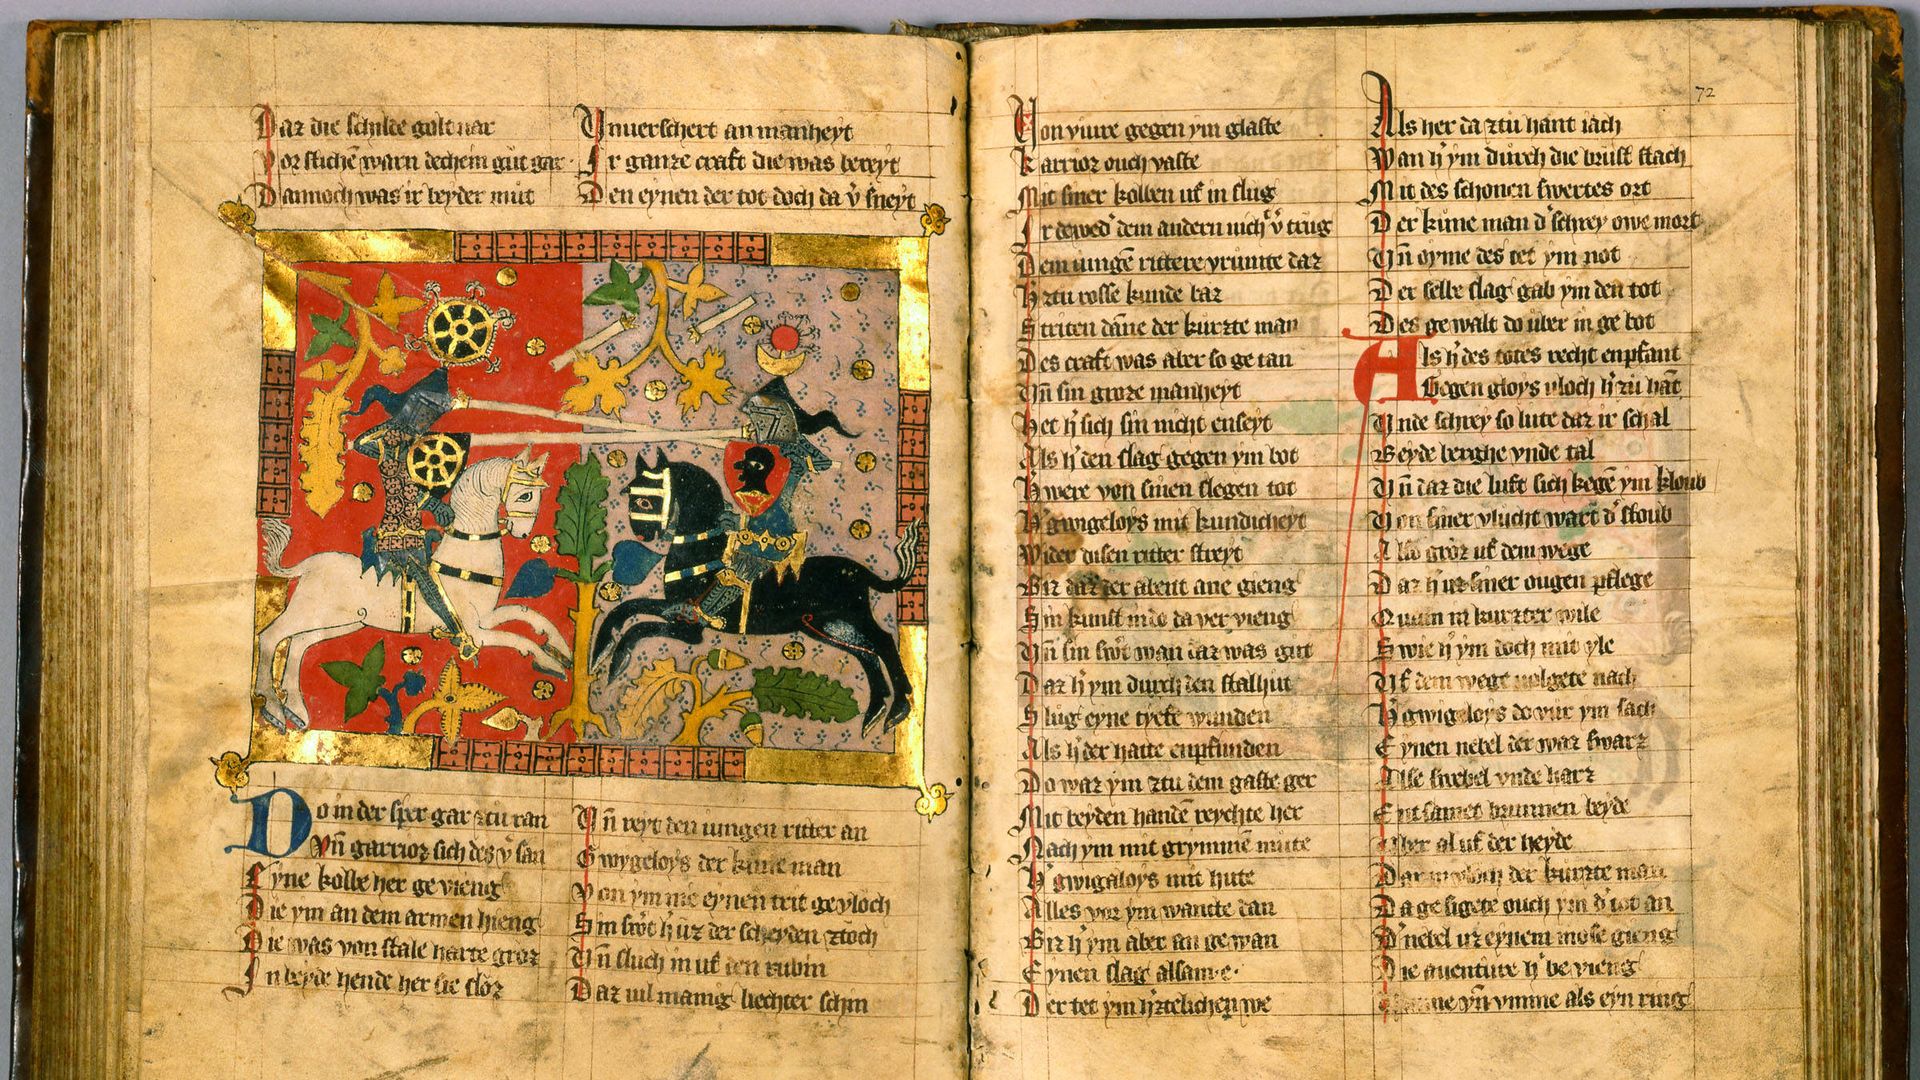 Daz die schilde golt var
Vor stichē warn dechein gūt gar
Dannoch was ir beyder mūt
Vnuerschert an manheyt
Ir ganze craft die was bereyt
Den eynen der tot doch da v̉ sneyt
Do in der sper gar ztū ran
Vn̄ garrioz sich des v̉ san
Eyne kolbe her ge vieng
Die ym an dem armen hieng
Die was von stale harte groz
In beyde hende her sie sloz
Vn̄ reyt den iungen ritter an
Gwygeloys der kūne man
Von ym nie eynen trit ge vloch
Sin swˀt hˀ uz der scheyden ztoch
Vn̄ sluch in uf den rubin
Daz vil manig liechter schin
72
Von viure gegen ym glaste
Karrioz ouch vaste
Mit siner kolben uf in slug
Ir dewedˀ dem andern nich v̉ trug
Dem iungē rittere vrumte daz
Hˀ ztu rosse kunde baz
Striten dāne der kurzte man
Des craft was aber so ge tan
Vn̄ sin groze manheyt
Het hˀ sich sin nicht enseyt
Als hˀ den slag gegen ym bot
Hˀ were von sinen slegen tot
Hˀ gwigeloys mit kundicheyt
Wider disen ritter streyt
Biz daz der abent ane gieng
Sin kunst in do da ver vieng
Vn̄ sin swˀt wan daz was gūt
Daz hˀ ym durch den stalhut
Slūg eyne tyefe wunden
Als hˀ der hatte enpfunden
Do waz ym ztu dem gaste ger
Mit beyden handē reychte her
Nach ym mit grymmē mūte
Hˀ gwigaloys mit hute
Alles vor ym wancte dan
Biz hˀ ym aber an ge wan
Eynen slag alsam e
Der tet ym hˀztelichen we
Als her da ztū hant iach
Wan hˀ ym durch die brust stach
Mit des schonen swertes ort
Der kūne man dˀ schrey owe mort
Vn̄ oyme des tet ym not
Der selbe slag gab ym den tot
Des ge walt do über in ge bot
Als hˀ des totes recht enpfant
Gegen gloys vloch hˀ zū hāt
Vnde schrey so lute daz ir schal
Beyde berghe vnde tal
Vn̄ daz die luft sich kegē ym kloub
Von siner vlucht wart dˀ stoub
Also groz uf dem wege
Daz hˀ uz siner ougen pflege
Quam in kurzter wile
Swie hˀ ym doch mit yle
Uf dem wege volgete nach
Hˀ gwigeloys do vur ym sach
Eynen nebel der waz swarz
Alse swebel vnde harz
Ent samet brunnen beyde
Uber al uf der heyde
Dar in vloch der kurzte man
Da ge sigete ouch ym dˀ tot an
Dˀ nebel uz eynem mose gieng
Die auentiure hˀ be vieng
vmme als eyn ring